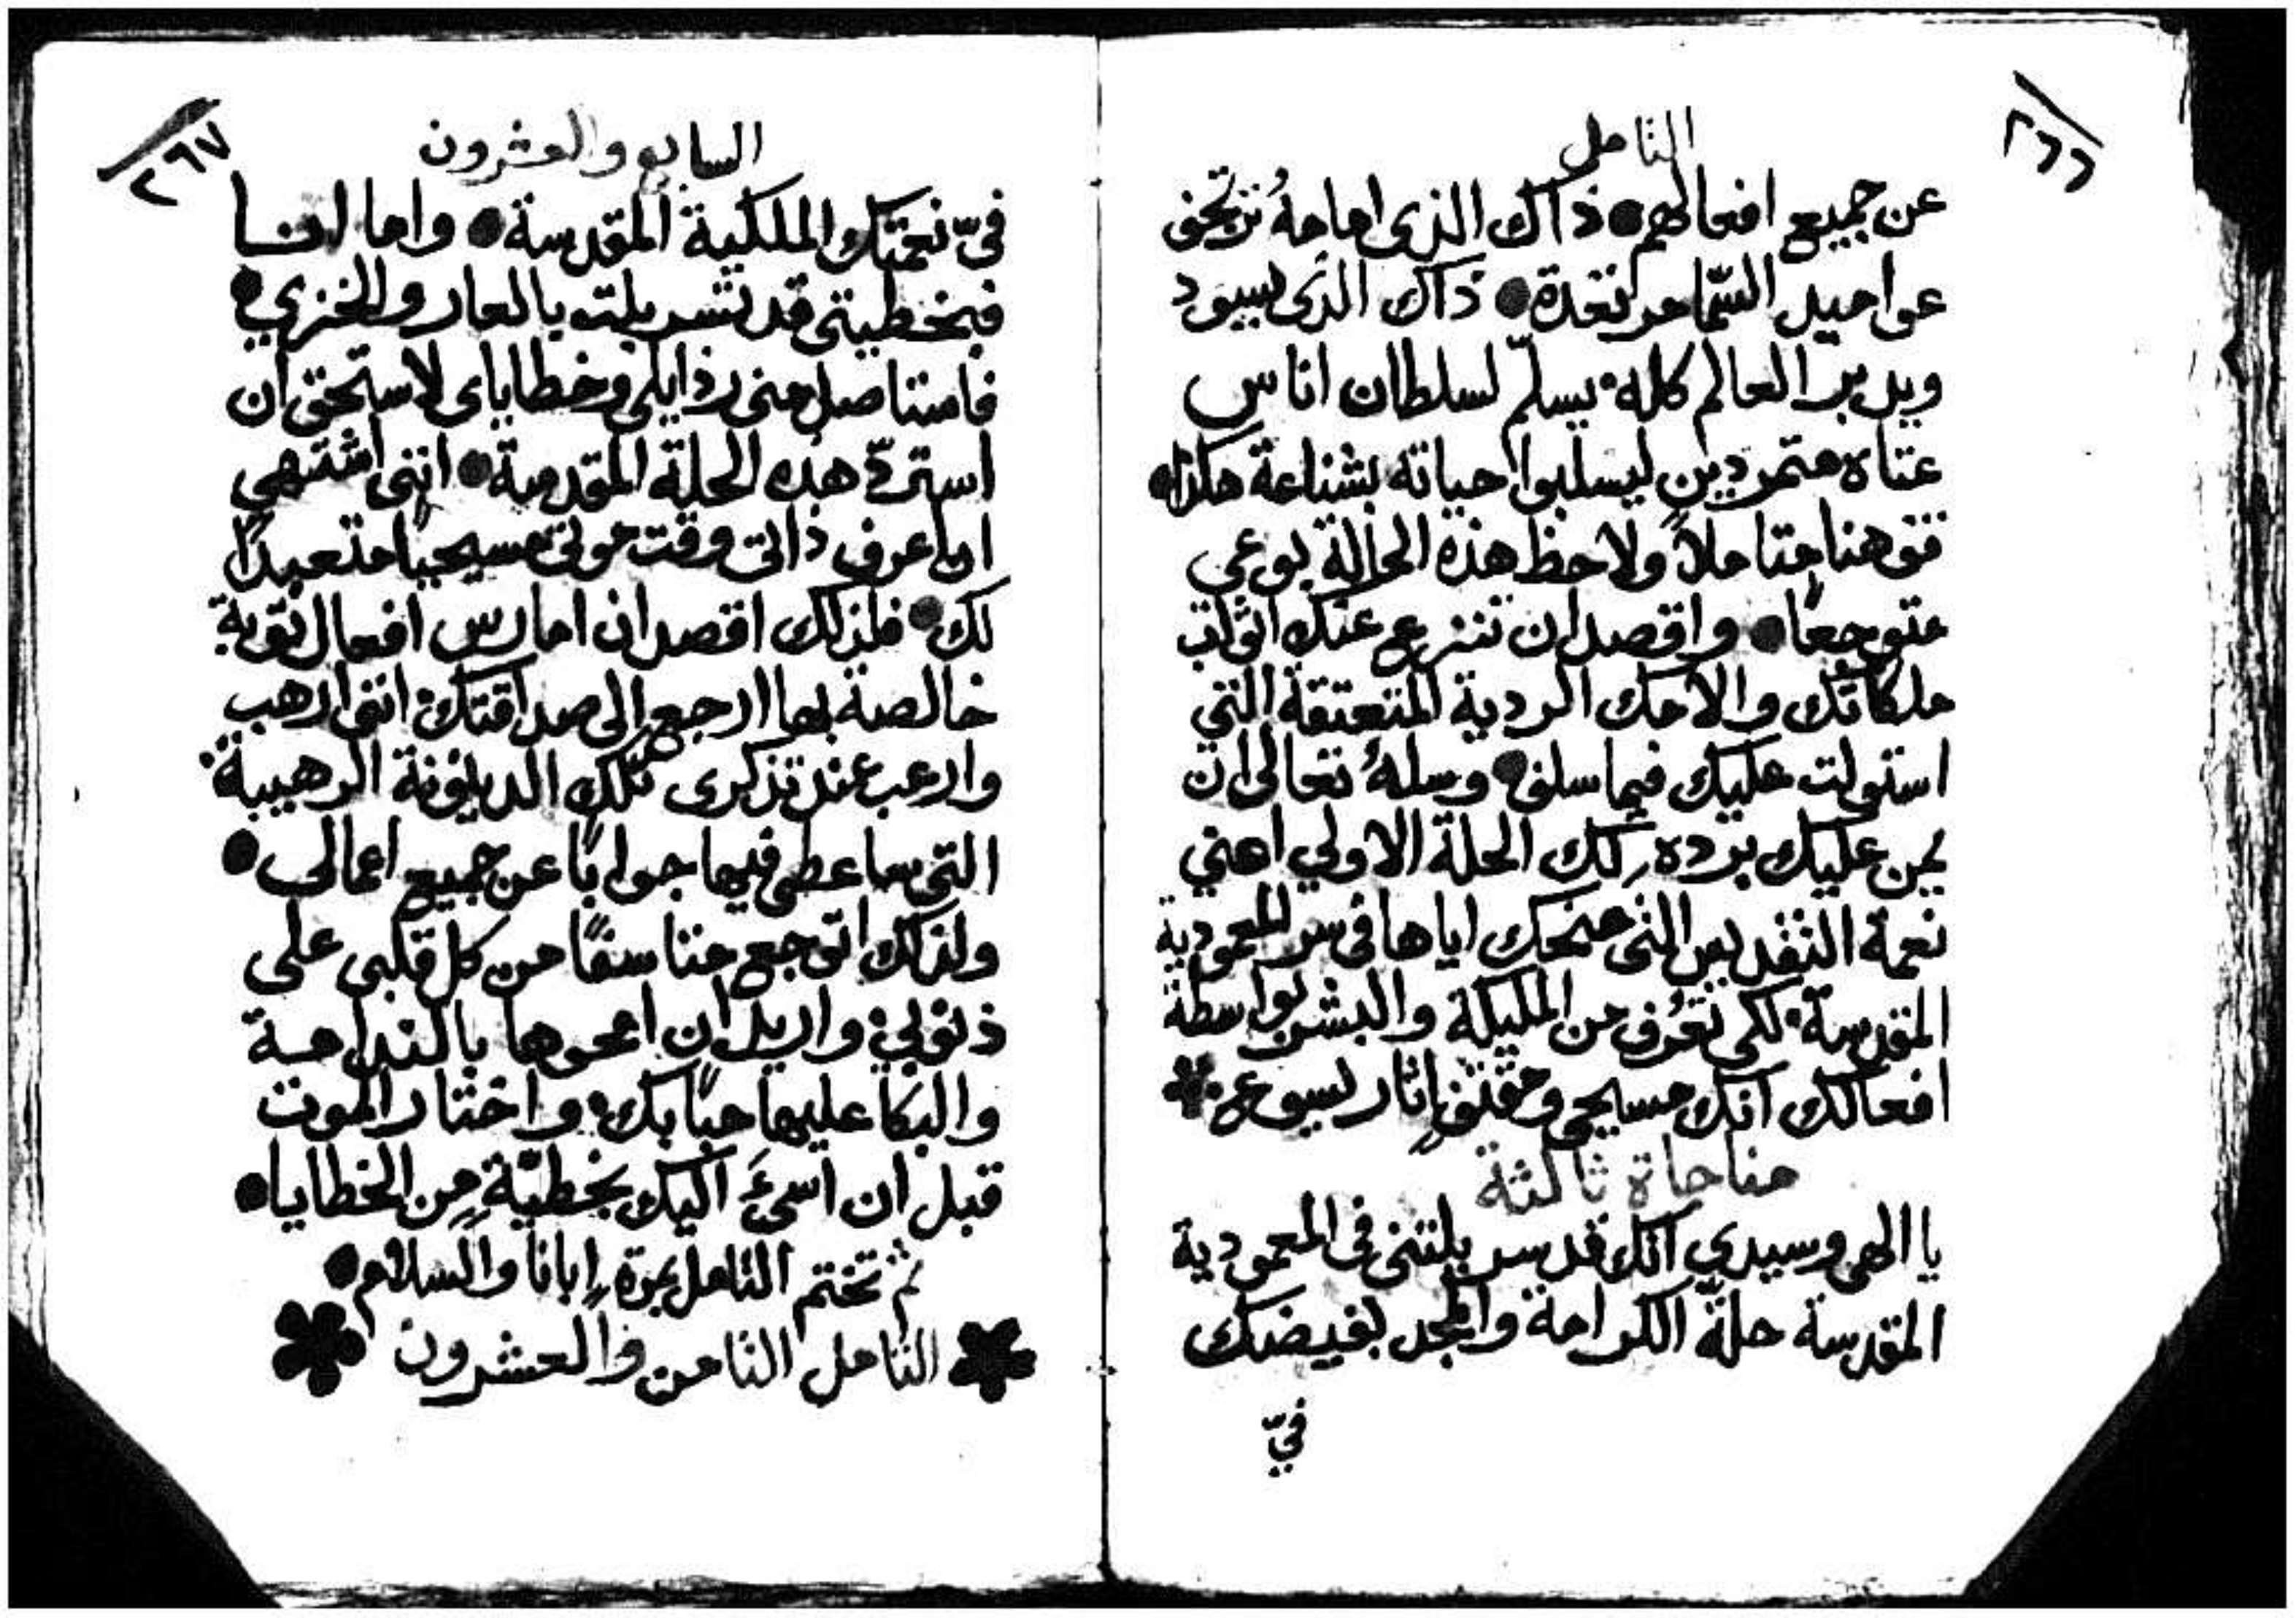 ٢٦٦
التامل
عن جميع افعالهم ذاك الذي امامهُ ترتجف
عواميد السّما مرتعدة ذاك الذي يسود
ويدبر العالم كله يسلّم لسلطان اناس
عتاه متمردين ليسلبوا حياته بشناعة هكذا
قف هنا متاملاً ولاحظ هذه الحالة بوعي
متوجعًا واقصد ان تنزع عنك اثواب
ملكاتك والامك الردية المتعتقة التي
استولت عليك فيما سلف وسلهُ تعالى ان
يمن عليك برده لك الحلة الاولي اعني
نعمة التقديس التي منحك اياها في سر المعمودية
المقدسة لكي تعُرف من المليكة والبشر بواسطة
افعالك انك مسيحي ومقتفٍ اثار يسوع
مناجاة ثالثة
يا الهي وسيدي انك قد سربلتني في المعمودية
المقدسة حلّة الكرامة والمجد بفيضك
فيّ
٢٦٧
السابع والعشرون
فيّ نعمتك الملكية المقدسة واما انا
فبخطيتي قد تسربلت بالعار والخزي
فامتناصل مني رذايلي وخطاياي لاستحق ان
استردّ هذه الحلة المقدسة انني اشتهي
ان اعرف ذاتي وقت موتي مسيحيًا متعبدًا
لك فلذلك اقصد ان امارس افعال توبة
خالصة بها ارجع الى صداقتك انني ارهب
وارعب عند تذكري تلك الدينونة الرهيبة
التي ساعطي فيها جوابًا عن جميع اعمالي
ولذلك اتوجع متاسفًا من كل قلبي على
ذنوبي واريد ان امحوها بالندامة
والبكا عليها حبًا بك واختار الموت
قبل ان اسيَ اليك بخطيّةٍ من الخطايا
ثم تختم التامل بمرة ابانا والسلام
التامل الثامن والعشرون